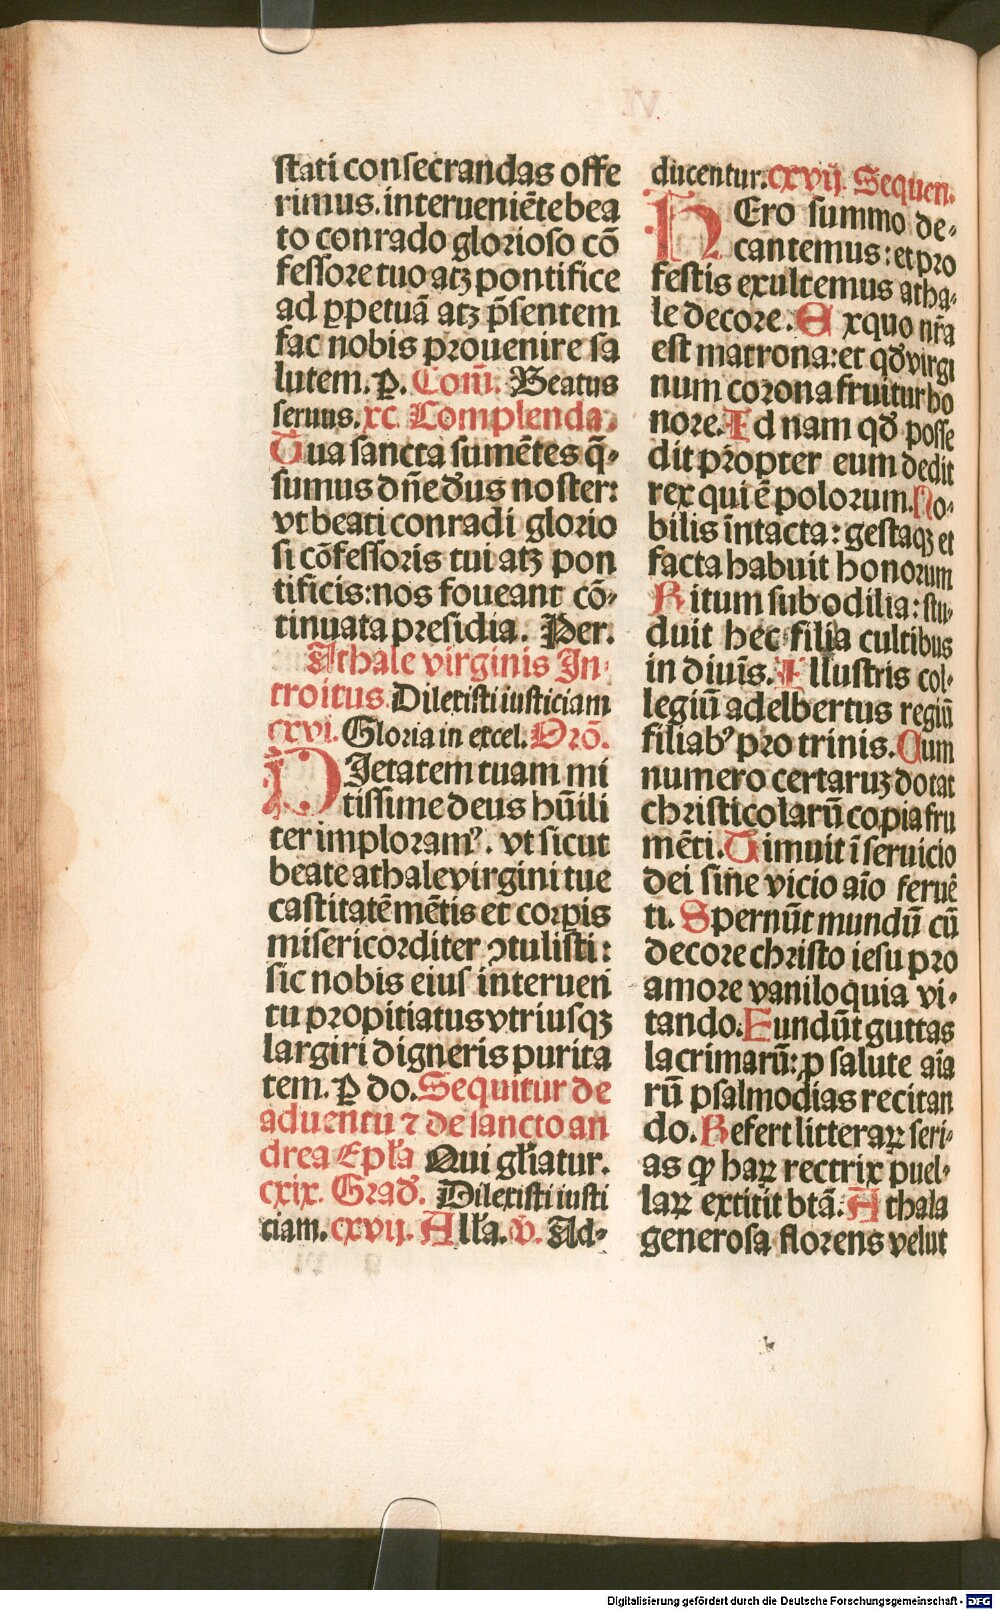 stati consecrandas offe
rimus. interueniēte bea
to conrado glorioso cō
fessore tuo atqꝫ pontifice
ad ꝑpetuā atqꝫ p̄sentem
fac nobis prouenire sa
lutem. ꝑ. Com̄. Beatus
seruus. xc Complenda.
Tua sancta sumētes q̄-
sumus dn̄e deus noster:
vt beati conradi glorio
si cōfessoris tui atqꝫ pon
tificis: nos foueant cō-
tinuata presidia. Per.
Athale virginis In-
troitus Dilexisti iusticiam
cxvi. Gloria in excel. Orō.
PIetatem tuam mi
tissime deus hūili
ter imploramꝰ. vt sicut
beate athale virgini tue
castitatē mētis et corpis
misericorditer ꝯtulisti:
sic nobis eius interueni
tu propitiatus vtriusqꝫ
largiri digneris purita
tem. ꝑ do. Sequitur de
aduentu ⁊ de sancto an
drea Epl̄a Qui gl̄iatur.
cxix. Grad. Dilexisti iusti
ciam. cxvij. All̄a. v̄. Ad-
ducentur. cxvij. Sequen.
HEro summo de-
cantemus: et pro
festis exultemus atha-
le decore. Ex quo nr̄a
est matrona: et qd virgi
num corona fruitur ho
nore. Id nam qd posse
dit propter eum dedit
rex qui ē polorum. No-
bilis intacta: gestaqꝫ et
facta habuit honorum
Ritum sub odilia: stu-
duit hec filia cultibus
in diuīs. Illustris col-
legiū adelbertus regiū
filiabꝰ pro trinis. Cum
numero certaruꝫ dotat
christicolarū copia fru
mēti. Timuit ī seruicio
dei sine vicio aīo feruē
ti. Spernūt mundū cū
decore christo iesu pro
amore vaniloquia vi-
tando. Fundūt guttas
lacrimarū: ꝓ salute aīa
rū psalmodias recitan
do. Refert litteraꝝ seri-
as ꝙ haꝝ rectrix puel-
laꝝ extitit btā. Athala
generosa florens velut
Digitalisierung gefördert durch die Deutsche Forschungsgemeinschaft - DFG